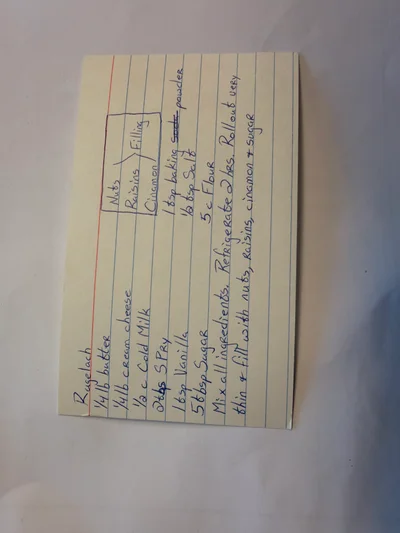 Rugelach
1/4 lb butter
1/4 lb cream cheese
1/2 c Cold Milk
2 tbs SPRY
1 tsp Vanilla
5 tbsp Sugar
Nuts
Raisins Filling
Cinamon
1 tsp baking powder
1/2 tsp Salt
5 c Flour
Mix all ingredients. Refrigerate 2 hrs. Roll out very
thin & fill with nuts, raisins, cinamon & sugar